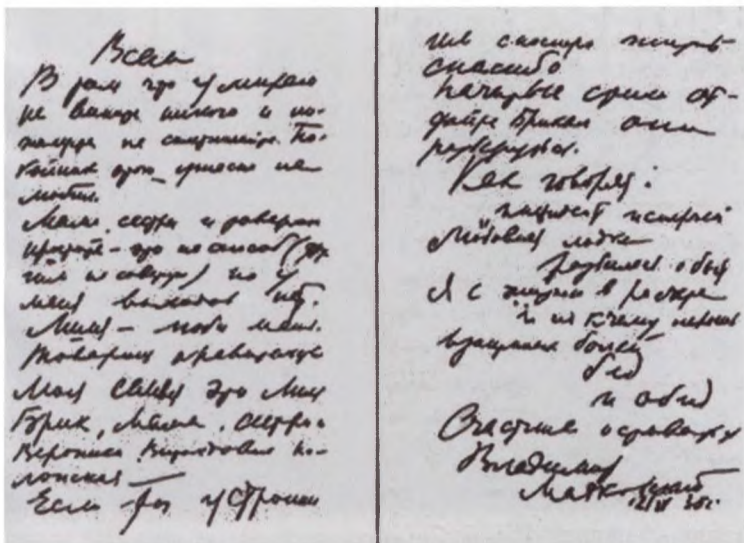 Всем
В том что умираю
не вините никого и по-
жалуйста не сплетничайте. По-
койник этого ужасно не
любил.
Мама, сестры и товарищи
простите – это не способ (дру
гим не советую) но у
меня выходов нет.
Лиля – люби меня.
Товарищ правительство
моя семья это Лиля
Брик, мама, сестры и
Вероника Витольдовна По-
лонская —
Если ты устроишь
им сносную жизнь –
спасибо.
Начатые стихи от-
дайте Брикам они
разберутся.
Как говорят:
инцидент исперчен
любовная лодка
разбилась о быт
Я с жизнью в расчете
и не к чему перечень
взаимных болей
бед
и обид
Счастливо оставаться
Владимир
Маяковский
12/IV 30г.